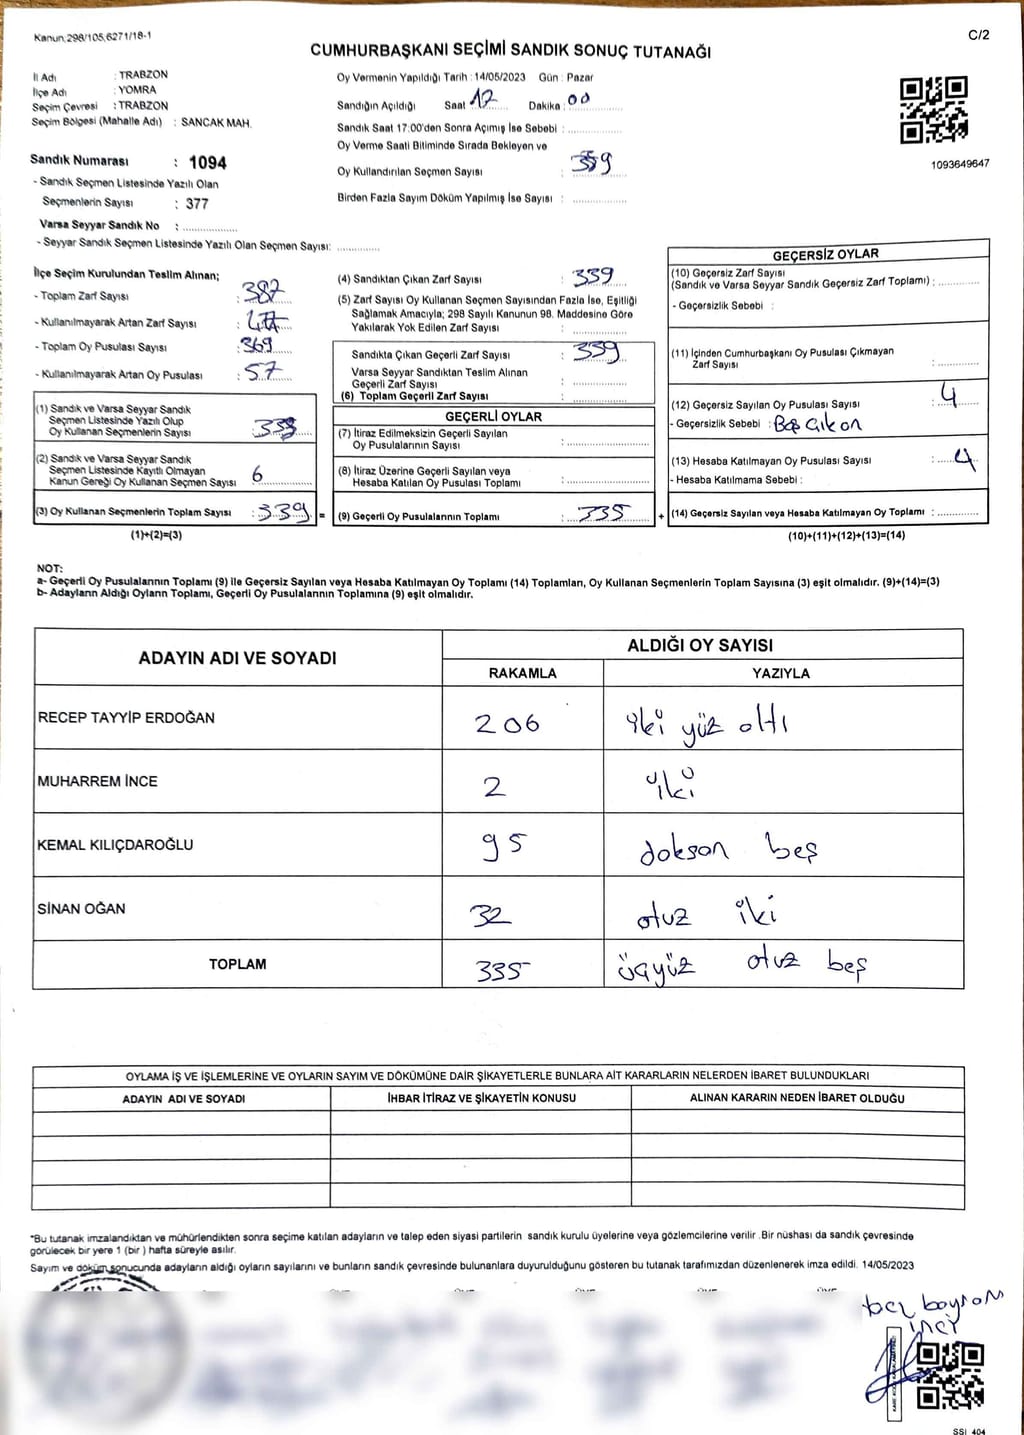 Kanun,298/105,6271/18-1
C/2
CUMHURBAŞKANI SEÇİMİ SANDIK SONUÇ TUTANAĞI
İl Adı : TRABZON
İlçe Adı : YOMRA
Seçim Çevresi : TRABZON
Seçim Bölgesi (Mahalle Adı) : SANCAK MAH.
Sandık Numarası : 1094
- Sandık Seçmen Listesinde Yazılı Olan
Seçmenlerin Sayısı : 377
Varsa Seyyar Sandık No :
- Seyyar Sandık Seçmen Listesinde Yazılı Olan Seçmen Sayısı:
Oy Vermenin Yapıldığı Tarih : 14/05/2023 Gün : Pazar
Sandığın Açıldığı Saat 17 Dakika : 00
Sandık Saat 17:00'den Sonra Açımış İse Sebebi :
Oy Verme Saati Bitiminde Sırada Bekleyen ve
Oy Kullandırılan Seçmen Sayısı : 339
Birden Fazla Sayım Döküm Yapılmış İse Sayısı :
1093649647
İlçe Seçim Kurulundan Teslim Alınan;
- Toplam Zarf Sayısı : 387
- Kullanılmayarak Artan Zarf Sayısı :
- Toplam Oy Pusulası Sayısı : 369
- Kullanılmayarak Artan Oy Pusulası : 57
(1) Sandık ve Varsa Seyyar Sandık
Seçmen Listesinde Yazılı Olup
Oy Kullanan Seçmenlerin Sayısı : 333
(2) Sandık ve Varsa Seyyar Sandık
Seçmen Listesinde Kayıtlı Olmayan
Kanun Gereği Oy Kullanan Seçmen Sayısı 6
(3) Oy Kullanan Seçmenlerin Toplam Sayısı : 339 =
(1)+(2)=(3)
(4) Sandıktan Çıkan Zarf Sayısı : 339
(5) Zarf Sayısı Oy Kullanan Seçmen Sayısından Fazla İse, Eşitliği
Sağlamak Amacıyla; 298 Sayılı Kanunun 98. Maddesine Göre
Yakılarak Yok Edilen Zarf Sayısı :
Sandıkta Çıkan Geçerli Zarf Sayısı : 339
Varsa Seyyar Sandıktan Teslim Alınan
Geçerli Zarf Sayısı :
(6) Toplam Geçerli Zarf Sayısı :
GEÇERLİ OYLAR
(7) İtiraz Edilmeksizin Geçerli Sayılan
Oy Pusulalarının Sayısı :
(8) İtiraz Üzerine Geçerli Sayılan veya
Hesaba Katılan Oy Pusulası Toplamı :
(9) Geçerli Oy Pusulalarının Toplamı : 335 +
GEÇERSİZ OYLAR
(10) Geçersiz Zarf Sayısı
(Sandık ve Varsa Seyyar Sandık Geçersiz Zarf Toplamı) :
- Geçersizlik Sebebi :
(11) İçinden Cumhurbaşkanı Oy Pusulası Çıkmayan
Zarf Sayısı :
(12) Geçersiz Sayılan Oy Pusulası Sayısı : 4
- Geçersizlik Sebebi : Boş Çıkan
(13) Hesaba Katılmayan Oy Pusulası Sayısı : 4
- Hesaba Katılmama Sebebi :
(14) Geçersiz Sayılan veya Hesaba Katılmayan Oy Toplamı :
(10)+(11)+(12)+(13)=(14)
NOT:
a- Geçerli Oy Pusulalarının Toplamı (9) ile Geçersiz Sayılan veya Hesaba Katılmayan Oy Toplamı (14) Toplamları, Oy Kullanan Seçmenlerin Toplam Sayısına (3) eşit olmalıdır. (9)+(14)=(3)
b- Adayların Aldığı Oyların Toplamı, Geçerli Oy Pusulalarının Toplamına (9) eşit olmalıdır.
ADAYIN ADI VE SOYADI
ALDIĞI OY SAYISI
RAKAMLA YAZIYLA
RECEP TAYYİP ERDOĞAN 206 iki yüz altı
MUHARREM İNCE 2 iki
KEMAL KILIÇDAROĞLU 95 doksan beş
SİNAN OĞAN 32 otuz iki
TOPLAM 335 üçyüz otuz beş
OYLAMA İŞ VE İŞLEMLERİNE VE OYLARIN SAYIM VE DÖKÜMÜNE DAİR ŞİKAYETLERLE BUNLARA AİT KARARLARIN NELERDEN İBARET BULUNDUKLARI
ADAYIN ADI VE SOYADI İHBAR İTİRAZ VE ŞİKAYETİN KONUSU ALINAN KARARIN NEDEN İBARET OLDUĞU
*Bu tutanak imzalandıktan ve mühürlendikten sonra seçime katılan adayların ve talep eden siyasi partilerin sandık kurulu üyelerine veya gözlemcilerine verilir .Bir nüshası da sandık çevresinde
görülecek bir yere 1 (bir ) hafta süreyle asılır.
Sayım ve döküm sonucunda adayların aldığı oyların sayılarını ve bunların sandık çevresinde bulunanlara duyurulduğunu gösteren bu tutanak tarafımızdan düzenlenerek imza edildi. 14/05/2023
bayram
inci
SSI 404